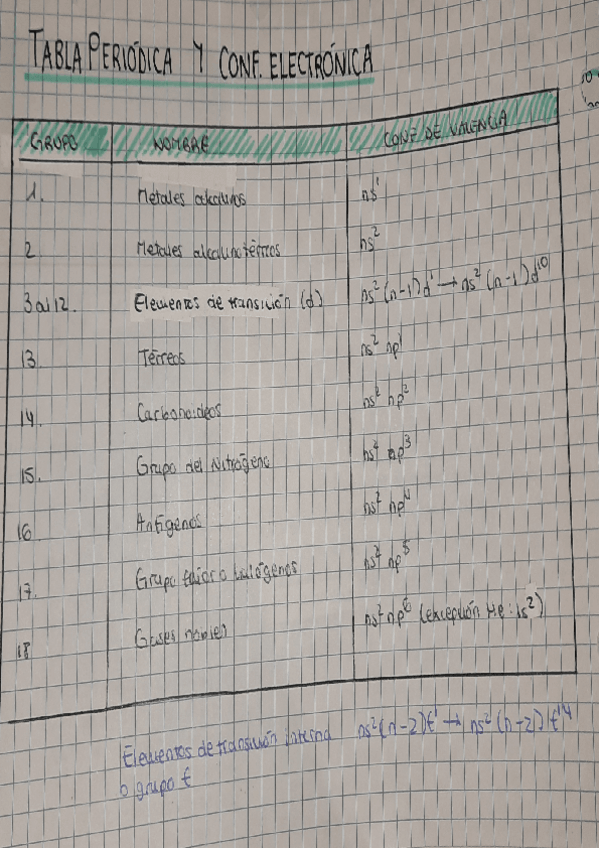 TABLA PERIÓDICA Y CONF. ELECTRÓNICA
GRUPO NOMBRE CONF DE VALENCIA
1. Metales alcalinos ns¹
2 Metales alcalinotérreos ns²
3 al 12. Elementos de transición (d) ns² (n-1) d¹ → ns² (n-1) d¹⁰
13. Térreos ns² np¹
14. Carbonoideos ns² np²
15. Grupo del Nitrógeno ns² np³
16 Anfígenos ns² np⁴
17. Grupo flúor o halógenos ns² np⁵
18 Gases nobles ns² np⁶ (excepción He: 1s²)
Elementos de transición interna ns² (n-2) f¹ → ns² (n-2) f¹⁴
o grupo f